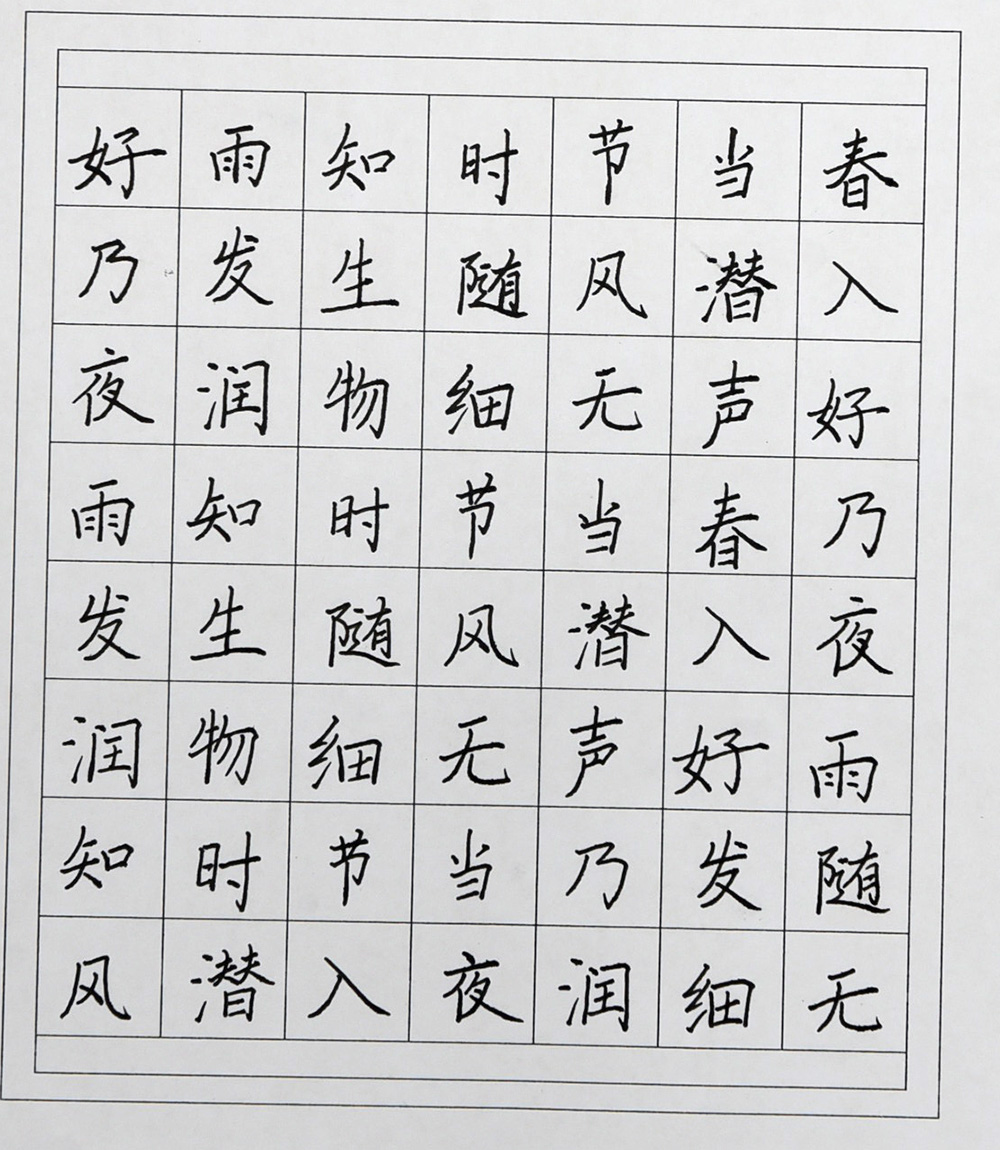 好雨知时节当春
乃发生随风潜入
夜润物细无声好
雨知时节当春乃
发生随风潜入夜
润物细无声好雨
知时节当乃发随
风潜入夜润细无